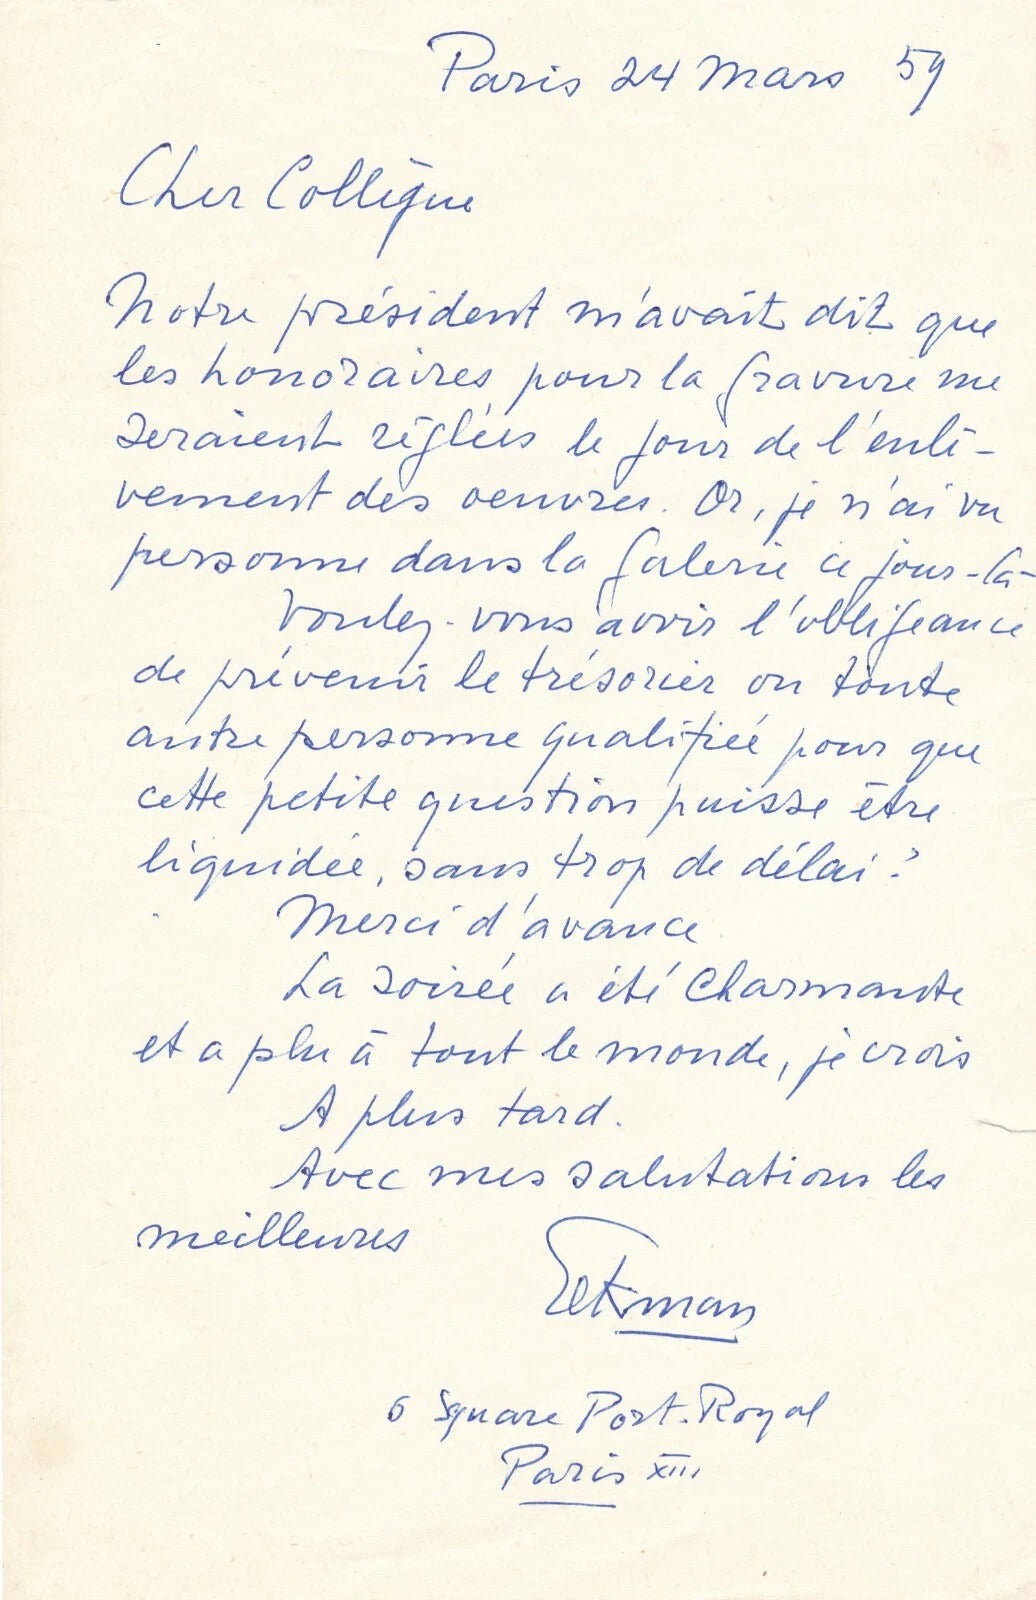 Paris 24 Mars 59
Cher Collègue
Notre président m'avait dit que
les honoraires pour la gravure me
seraient réglées le jour de l'enlè-
vement des oeuvres. Or, je n'ai vu
personne dans la Galerie ce jour-là-
Voulez-vous avoir l'obligeance
de prévenir le trésorier ou toute
autre personne qualifiée pour que
cette petite question puisse être
liquidée, sans trop de délai?
Merci d'avance
La soirée a été charmante
et a plu à tout le monde, je crois
A plus tard.
Avec mes salutations les
meilleures
6 Square Port-Royal
Paris XIII